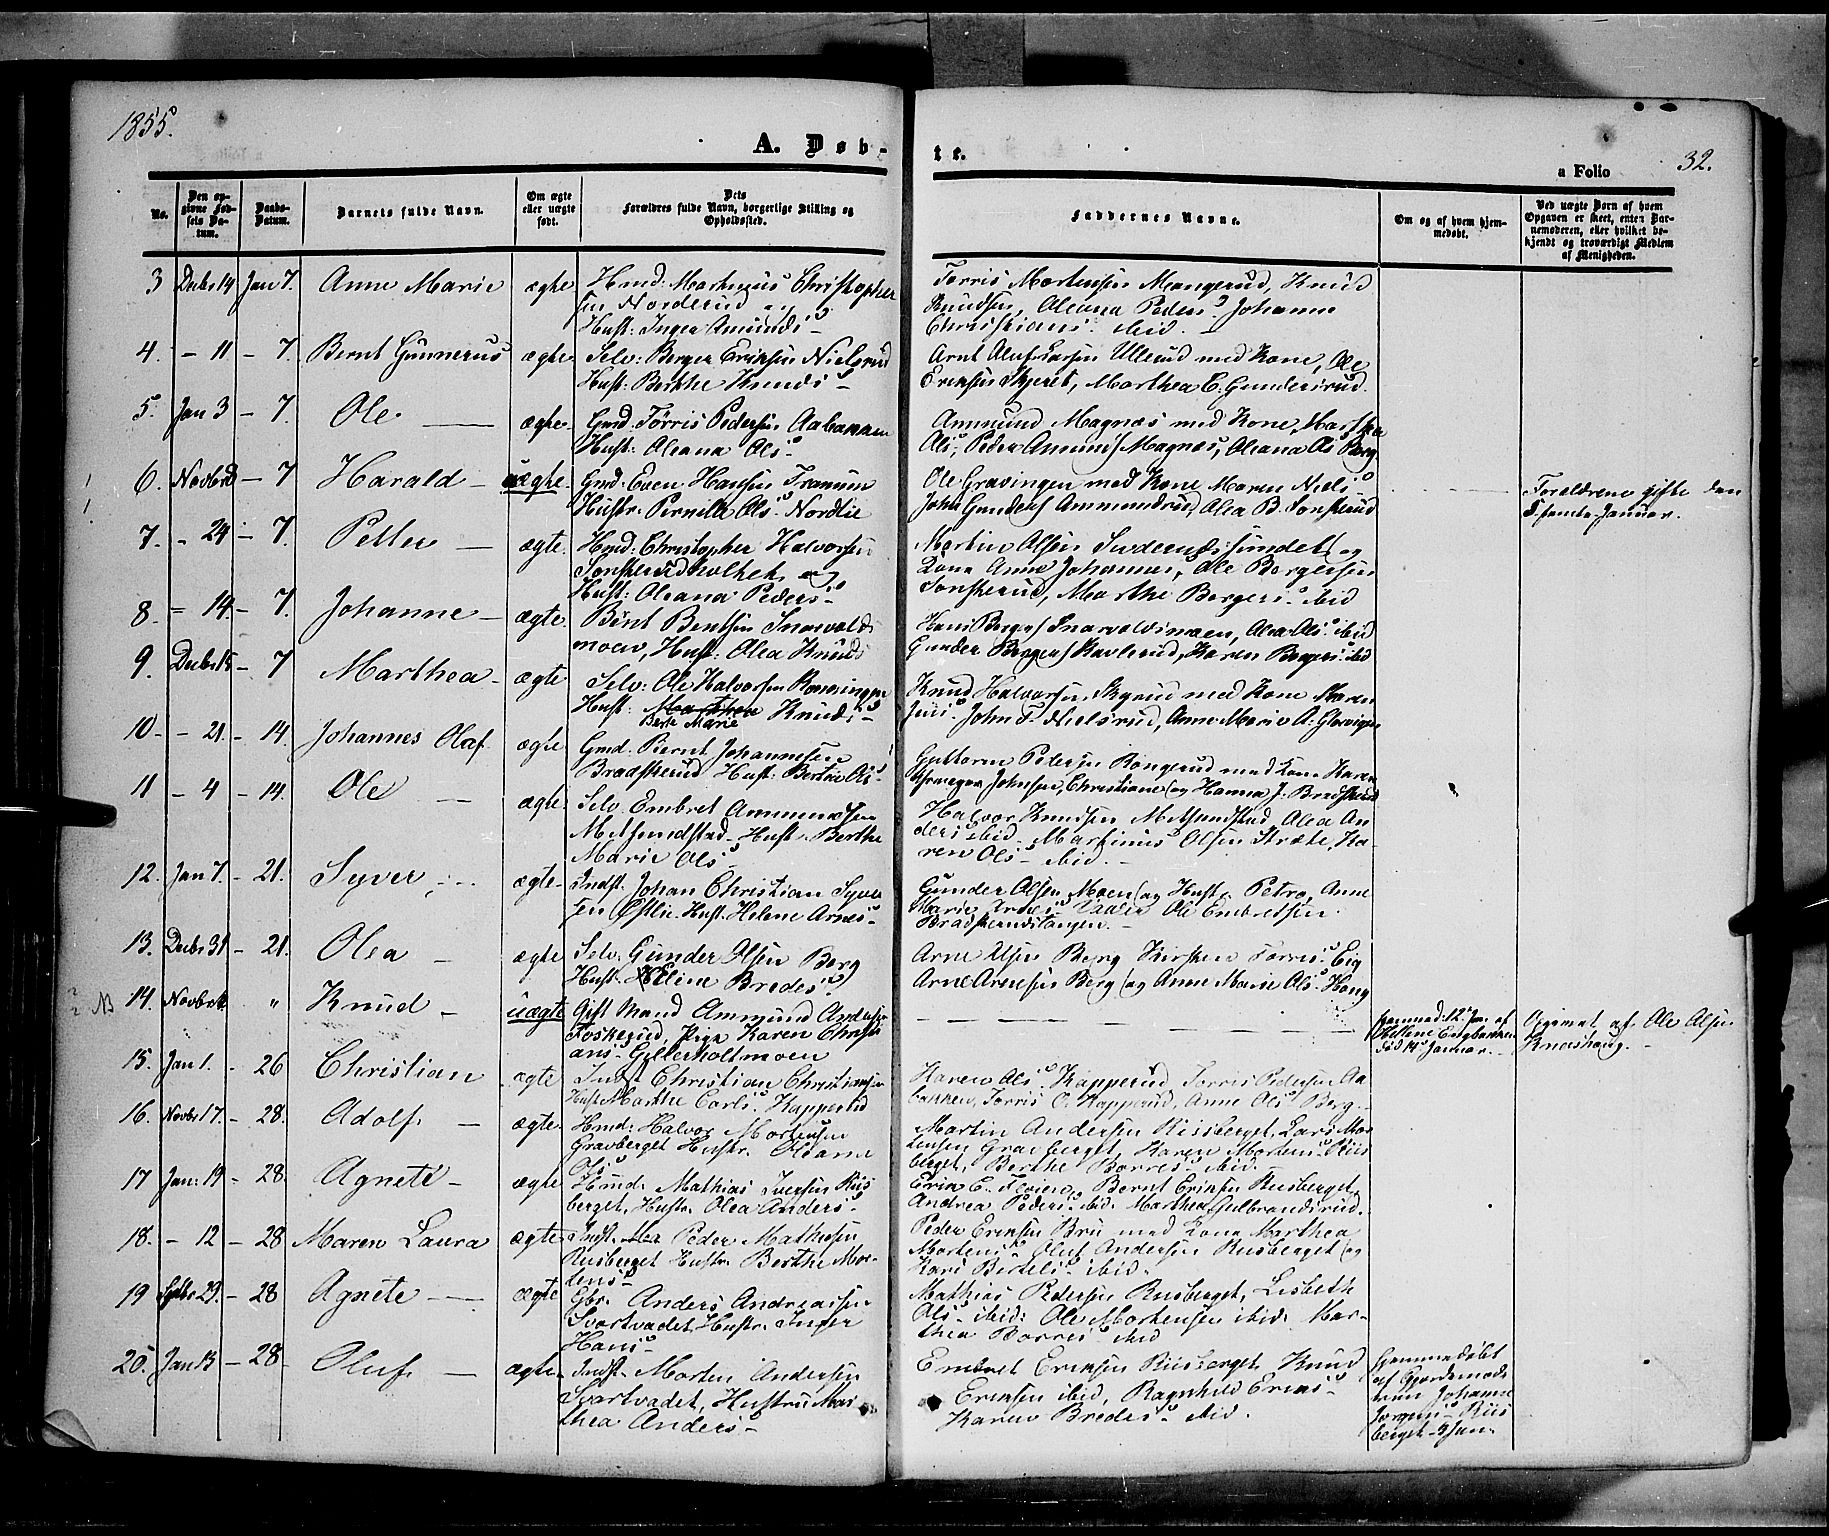 1855.
A. Døb-
te.
a Folio 32.
No.
Den op-
givne Fød-
sels Da-
tum.
Daabs-
Datum.
Barnets fulde Navn.
Om ægte
eller uægte
født.
Dets
Forældres fulde Navn, borgerlige Stilling og
Opholdssted.
Faddernes Navne.
Om og af hvem hjem-
medøbt.
Ved uægte Børn af hvem
Opgaven er skeet, enten Bar-
nemoderen, eller hvilket be-
kjendt og troværdigt Medlem
af Menigheden.
3 Decbr 14 Jan 7. Anne Marie ægte Hmd: Marthinus Christopher
sen Norderud og
Hust: Inger Amunds-
Torris Mortensen Mangerud, Knud
Knudsen, Oleana Peders- Johanne
Christians- ibid. -
4. - 11 - 7. Bernt Gunnerus ægte Selv: Berger Eriksen Nielsrud
Hust: Berthe Knuds-
Arnt Oluf Larsen Ullerud med Kone, Ole
Eriksen Skjeret, Marthea E. Gundersrud.
5. Jan 3 - 7. Ole - ægte Gmd: Tørris Pedersen Aabakken
Hust: Oleana Ols-
Ammund Magnæs med Kone, Marthea
Ols-, Peder Amunds Magnæs, Oleana Ols Berg
6. Novbr - 7 Harald - uægte Gmd: Even Hansen Framün
Hustr: Pernille Ols- Nordlie
Ole Gravingen med Kone Maren Niels-
John Gunders Ammundrud Olea B. Sonskerud
Forældrene gifte den
5 femte Januar.
7. - 24 - 7. Petter - ægte. Hmd: Christopher Halvorsen
Sonskerudholtet og
Hust: Oleana Peders-
Martin Olsen Svderudssundet og
Kone Anne Johannes, Ole Bergersen
Sonskerud, Marthe Bergers- ibid
8. - 14 - 7. Johanne - ægte Bent Bentsen Snarvolds
moen, Hust: Olea Knuds
Hans Bergers Snarvoldsmoen, Olea Ols- ibid
Gunder Bergers Kavlerud, Karen Bergers- ibid
9. Decbr 15 - 7 Marthea - ægte Selv: Ole Halvorsen Rønningen
Hust: Marthea Knuds-
Berte Marie
Knud Halvorsen Byrud med Kone Maren
Juls- John F. Nielsrud, Anne Marie A. Glorvigen
10. - 21 - 14. Johannes Olaf. ægte Gmd. Bernt Johannesen
Bradskerud Hust: Berthe Ols-
Guttorm Pedersen Rongerud med Kone Karen
Johnsen, Christiane og Hanna J. Bradskerud
11 - 4 - 14. Ole - ægte Selv Embret Ammundsen
Mitsundstad. Hust: Berthe
Marie Ols-
Halvor Knudsen Mitsundstad, Olea An
ders- ibid. Martinus Olsen Stræte, Ka-
ren Ols- ibid. -
12. Jan 7. - 21. Syver - ægte- Indst. Johan Christian Syver
sen Østlie. Hust. Helene Arnes-
Gunder Olsen Moen og Hustr. Petra, Anne
Marie Arnes- Ole Embretsen
Bradskerudstangen. -
13. Decbr 31 - 21. Olea - ægte Selv: Gunder Olsen Berg
Hust: Eline Bredes-
Arne Olsen Berg Kirsten Torris- Eig
Arne Arnesen Berg og Anne Marie Ols- Haug
NB 14. Novbr " Knud - uægte Gift Mand Ammund Andersen
Foskerud, Pige Karen Christi
ans- Gullerholtmoen
hjemmed: 12 Jan. af
Hellene Engbakken
død 14 Januar. -
Opgivet af Ole Olsen
Knashaug. -
15. Jan 1. - 26 Christian ægte Indst Christian Christiansen
Hust Marthe Carls- Kapperud
Karen Ols- Kapperud, Torris Pedersen Aa-
bakken, Torris O. Kapperud, Anne Ols- Berg
16. Novbr 17. - 28. Adolf. - ægte Hmd: Halvor Mortensen
Gravberget Hustr. Oleane
Ols-
Martin Andersen Riisberget, Lars Mor
tensen Gravberget, Karen Mortens- Riis
berget, Berthe Borres- ibid.
17 Jan: 19 - 28. Agnete - ægte Hmd: Mathias Iversen Riis
berget, Hustr. Olea Anders-
Erik E. Flo, Bernt Eriksen Riisberget
Andrea Peders- ibid. Marthea Gulbrandsrud.
18. - 12 - 28 Maren Laura ægte Indst. Peder Mathisen
Riisberget Hustr. Berthe Mor-
tens-
Peder Eriksen Bru med Kone Marthea
Mortens- Oluf Andersen Riisberget og
Kari Bertels- ibid.
19 Sptbr 29. - 28 Agnete - ægte Gbr. Anders Andreassen
Svartvadet, Hustr. Inger
Hans-
Mathias Pedersen Riisberget, Lisbeth
Ols- ibid: Ole Mortensen ibid: Mar-
thea Borres- ibid
20. Jan 13 - 28. Oluf. - ægte. Indst. Morten Andersen
Svartvadet, Hustru Mar
thea Anders-
Embret Eriksen Riisberget. Knud
Eriksen ibid, Ragnhild Eriks-
Karen Bredes- ibid.
hjemmedøbt
af Gjordemod
eren Johanne
Jørgens- Riis
berget-